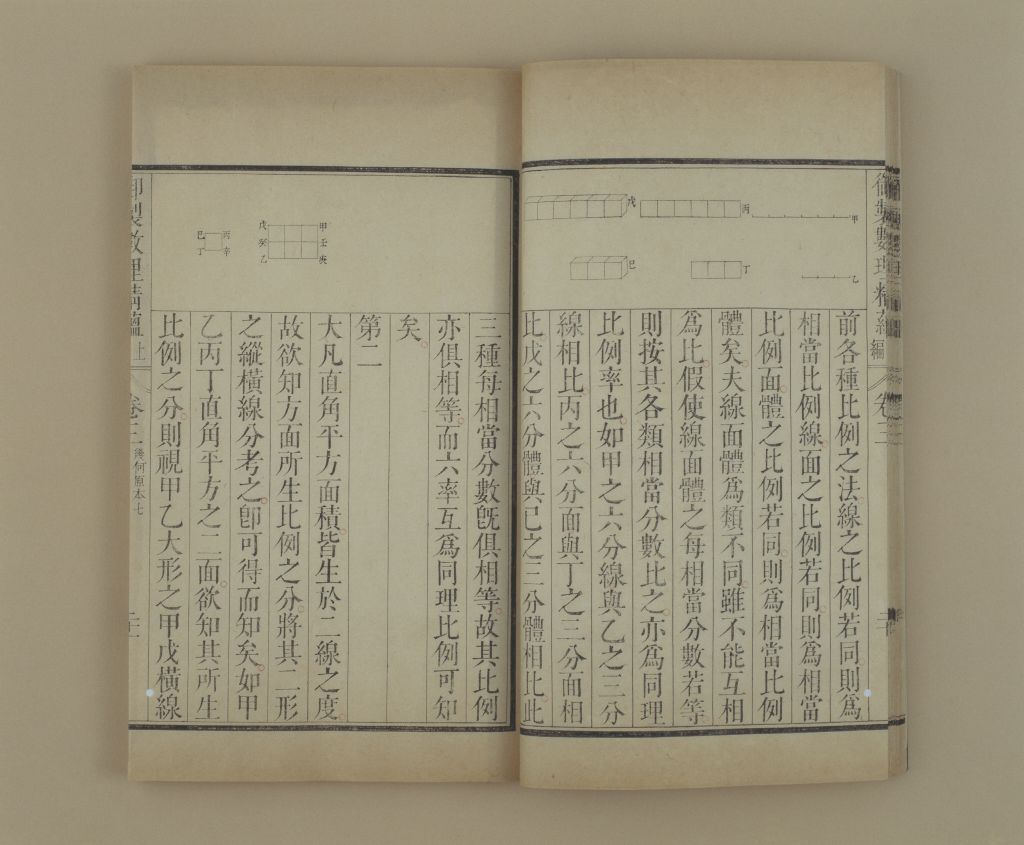 御製數理精蘊
編
卷三
甲
乙
丙
丁
戊
巳
前各種比例之法線之比例若同則爲
相當比例線面之比例若同則爲相當
比例面體之比例若同則爲相當比例
體矣夫線面體爲類不同雖不能互相
爲比假使線面體之每相當分數若等
則按其各類相當分數比之亦爲同理
比例率也如甲之六分線與乙之三分
線相比丙之六分面與丁之三分面相
比戊之六分體與已之三分體相比此
三種每相當分數旣俱相等故其比例
亦俱相等而六率互爲同理比例可知
矣
第二
大凡直角平方面積皆生於二線之度
故欲知方面所生比例之分將其二形
之縱橫線分考之卽可得而知矣如甲
乙丙丁直角平方之二面欲知其所生
比例之分則視甲乙大形之甲戊橫線
甲
壬
庚
戊
癸
乙
丙
辛
巳
丁
御製數理精蘊
上
卷三
幾何原本七